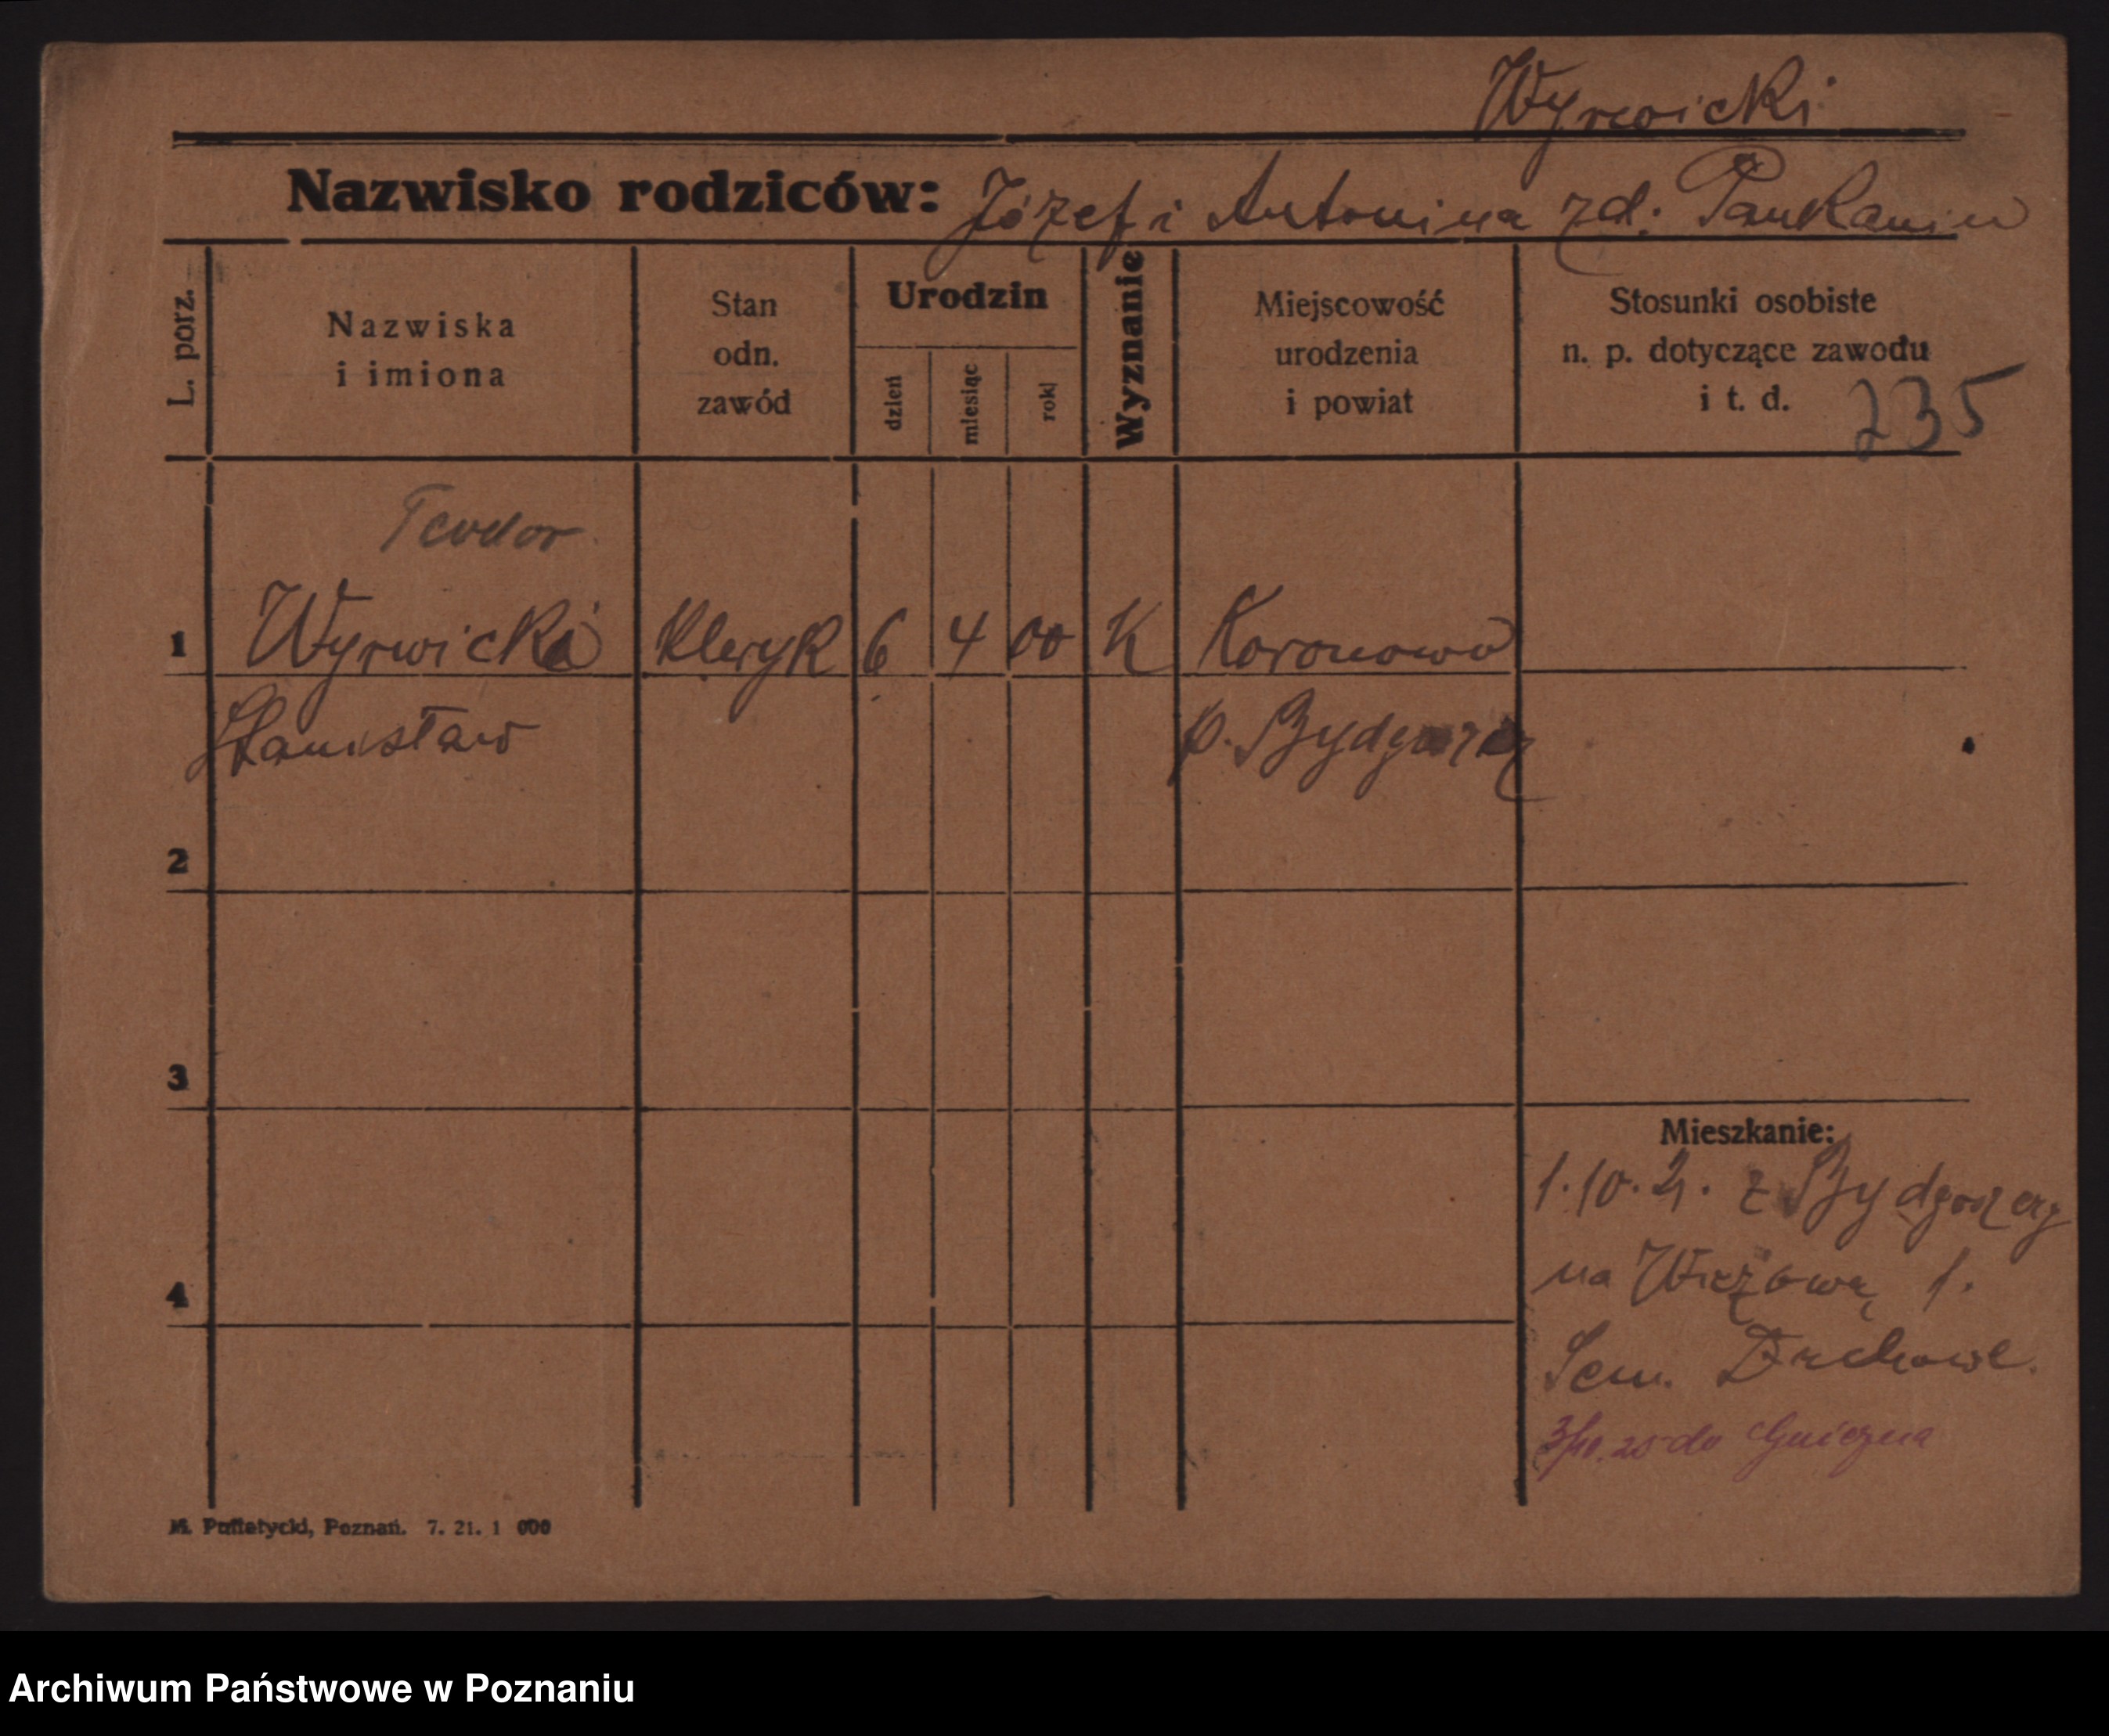 Wyrwicki
Nazwisko rodziców: Józef i Antonina zd. Pankanin
L. porz.
Nazwiska
i imiona
Stan
odn.
zawód
Urodzin
dzień
miesiąc
rok
Wyznanie
Miejscowość
urodzenia
i powiat
Stosunki osobiste
n. p. dotyczące zawodu
i t. d.
235
Teodor
1 Wyrwicki Kleryk 6 4 00 K Koronowo
Stanisław p. Bydgoszcz
2
3
Mieszkanie:
1.10.21. z Bydgoszczy
4 na Wieżową 1.
Sem. Duchowe.
3/10. 25 do Gniezna
M. Putiatycki, Poznań. 7. 21. 1 000
Archiwum Państwowe w Poznaniu